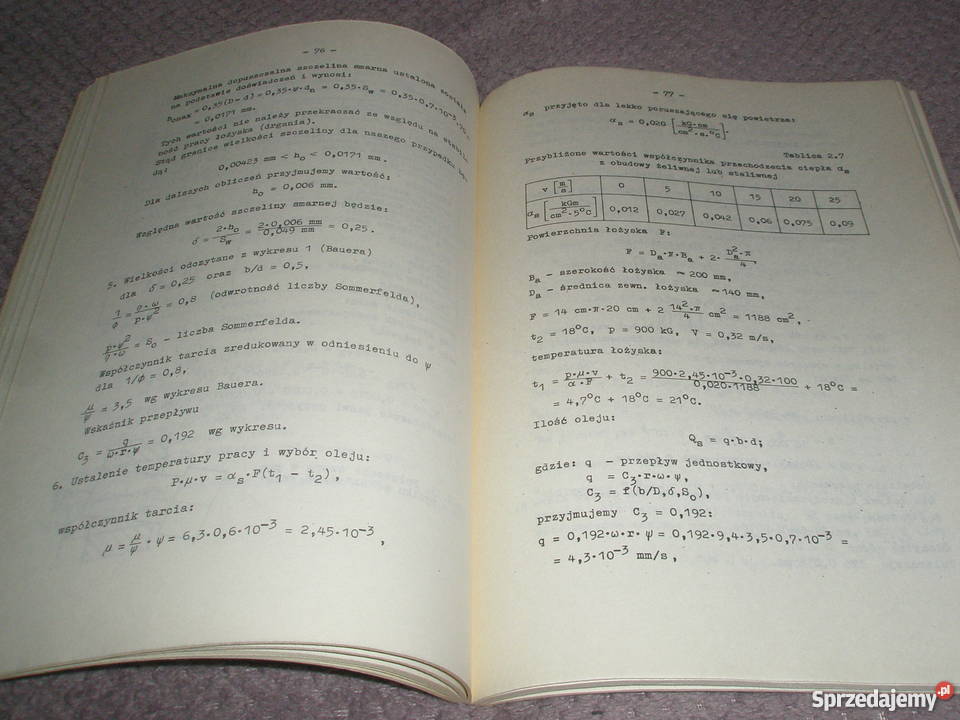 - 76 -
Maksymalna dopuszczalna szczelina smarna ustalona została
na podstawie doświadczeń i wynosi:
h₀max = 0,35(D-d) = 0,35·ψ·dₙ = 0,35·S_w = 0,35·0,7·10⁻³·70
= 0,0171 mm.
Tych wartości nie należy przekraczać ze względu na stabil-
ność pracy łożyska (drgania).
Stąd granice wielkości szczeliny dla naszego przypadku bę-
dą:
0,00423 mm < h₀ < 0,0171 mm.
Dla dalszych obliczeń przyjmujemy wartość:
h₀ = 0,006 mm.
Względna wartość szczeliny smarnej będzie:
δ = 2·h₀/S_w = 2·0,006 mm/0,049 mm = 0,25.
5. Wielkości odczytane z wykresu 1 (Bauera)
dla δ = 0,25 oraz b/d = 0,5,
1/ϕ = η·ω/p·ψ² = 0,8 (odwrotność liczby Sommerfelda),
p·ψ²/η·ω = S₀ - liczba Sommerfelda.
Współczynnik tarcia zredukowany w odniesieniu do ψ
dla 1/ϕ = 0,8,
μ/ψ = 3,5 wg wykresu Bauera.
Wskaźnik przepływu
C₃ = q/ω·r·ψ = 0,192 wg wykresu.
6. Ustalenie temperatury pracy i wybór oleju:
P·μ·v = αₛ·F(t₁ - t₂),
współczynnik tarcia:
μ = μ/ψ · ψ = 6,3·0,6·10⁻³ = 2,45·10⁻³,
- 77 -
αₛ przyjęto dla lekko poruszającego się powietrza:
αₛ = 0,020 [kG·nm/cm²·s·°C].
Tablica 2.7
Przybliżone wartości współczynnika przechodzenia ciepła αₛ
z obudowy żeliwnej lub staliwnej
v [m/s] 0 5 10 15 20 25
αₛ [kGm/cm²·5°C] 0,012 0,027 0,042 0,06 0,075 0,09
Powierzchnia łożyska F:
F = Dₐ·π·Bₐ + 2· Dₐ²·π/4,
Bₐ - szerokość łożyska ~ 200 mm,
Dₐ - średnica zewn. łożyska ~140 mm,
F = 14 cm·π·20 cm + 2 14²·π/4 cm² = 1188 cm²,
t₂ = 18°C, P = 900 kG, V = 0,32 m/s,
temperatura łożyska:
t₁ = P·μ·v/α·F + t₂ = 900·2,45·10⁻³·0,32·100/0,020·1188 + 18°C =
= 4,7°C + 18°C = 21°C.
Ilość oleju:
Qₛ = q·b·d;
gdzie: q - przepływ jednostkowy,
q = C₃·r·ω·ψ,
C₃ = f(b/D,δ,S₀),
przyjmujemy C₃ = 0,192:
q = 0,192·ω·r·ψ = 0,192·9,4·3,5·0,7·10⁻³ =
= 4,3·10⁻³ mm/s,
Sprzedajemy.pl